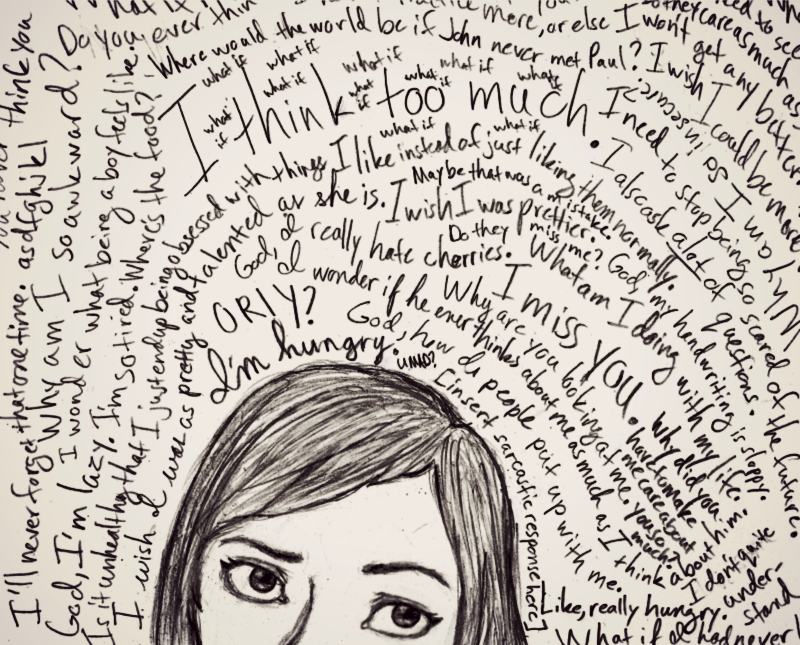 Do you ever think
Where would the world be if John never met Paul? I wish I could be more
practice more, or else I won't get any better
what if what if what if what if what if what if what if what if what if what if what if what if
I think too much.
I need to stop being so scared of the future.
Why am I so insecure?
Is it unhealthy that I just end up being obsessed with things I like instead of just liking them normally.
I also ask a lot of questions.
Maybe that was a mistake.
I wish I was as pretty and talented as she is. I wish I was prettier.
Do they miss me?
God, my handwriting is sloppy.
God, I really hate cherries. What am I doing with my life.
I wonder if he ever thinks about me as much as I think about him.
Why are you looking at me.
I miss you. Why did you have to make me care about you so much?
I don't quite understand
ORLY?
God, how do people put up with me.
I'm hungry.
umad?
[insert sarcastic response here]
Like, really hungry.
What if I had never
I'll never forget that one time. asdfghjkl
God, Why am I so awkward?
I'm lazy. I wonder what being a boy feels like.
I'm so tired. Where's the food?